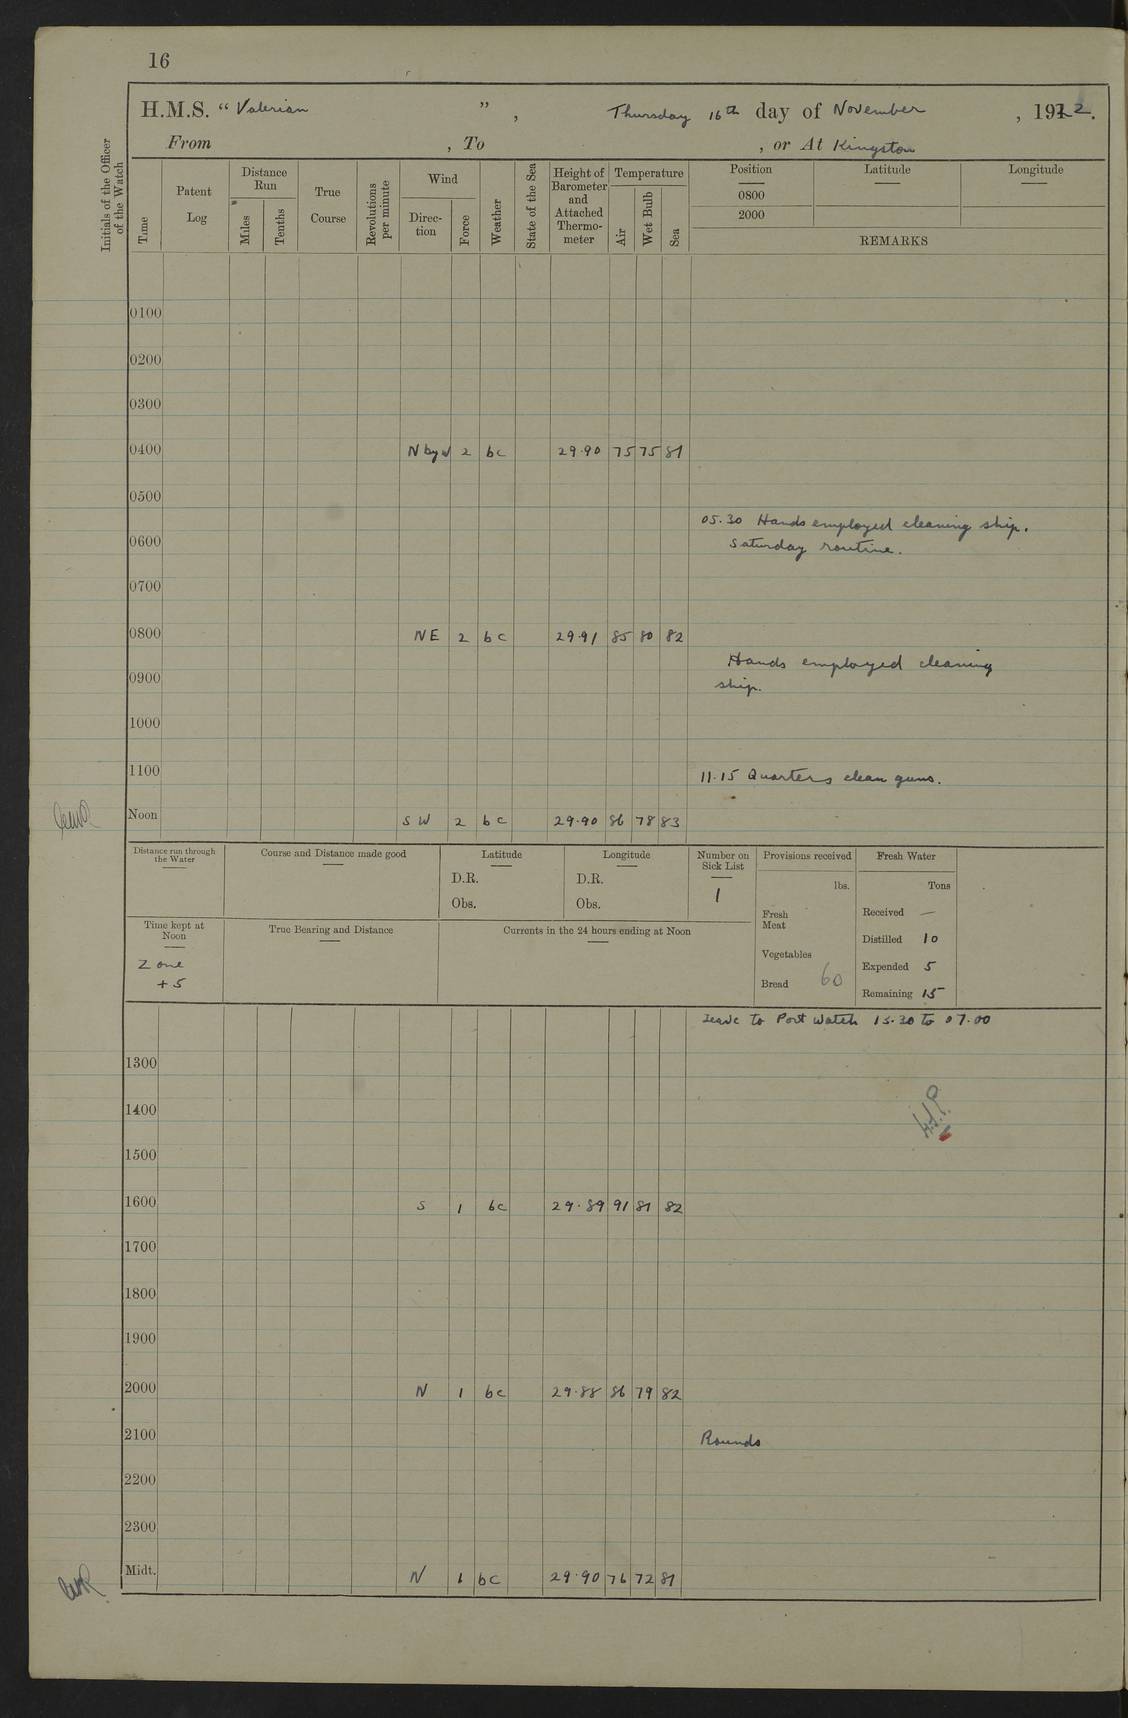 16
H.M.S. “ Valerian ” , Thursday 16th day of November , 1922.
From , To , or At Kingston
Initials of the Officer of the Watch
Time
Patent Log
Distance Run
Miles
Tenths
True Course
Revolutions per minute
Wind
Direc-tion
Force
Weather
State of the Sea
Height of Barometer and Attached Thermo-meter
Temperature
Air
Wet Bulb
Sea
Position Latitude Longitude
0800
2000
REMARKS
0100
0200
0300
0400 N by W 2 bc 29.90 75 75 81
0500
05.30 Hands employed cleaning ship.
0600 Saturday routine.
0700
0800 NE 2 bc 29.91 85 80 82
Hands employed cleaning
0900 ship.
1000
1100 11.15 Quarters clean guns.
Noon SW 2 bc 29.90 86 78 83
Distance run through the Water
Course and Distance made good
Latitude
D.R.
Obs.
Longitude
D.R.
Obs.
Number on Sick List
1
Provisions received
lbs.
Fresh Meat
Vegetables
Bread 60
Fresh Water
Tons
Received —
Distilled 10
Expended 5
Remaining 15
Time kept at Noon
Zone
+5
True Bearing and Distance
Currents in the 24 hours ending at Noon
Leave to Port Watch 15.30 to 07.00
1300
1400
1500
1600 S 1 bc 29.89 91 81 82
1700
1800
1900
2000 N 1 bc 29.88 86 79 82
2100 Rounds
2200
2300
Midt. N 1 bc 29.90 76 72 81